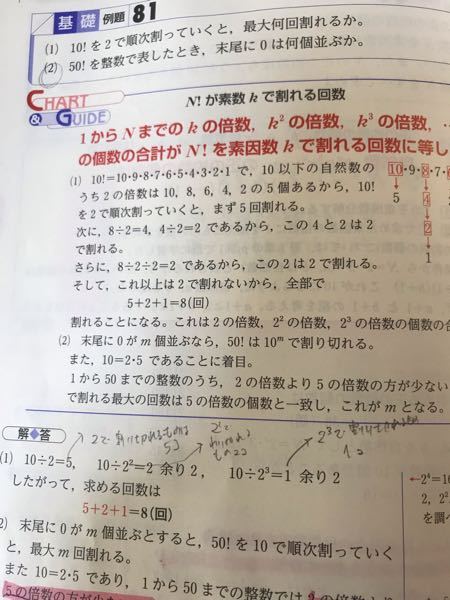 基礎 例題 81
(1) 10! を 2 で順次割っていくと，最大何回割れるか。
(2) 50! を整数で表したとき，末尾に 0 は何個並ぶか。
CHART & GUIDE
N! が素数 k で割れる回数
1 から N までの k の倍数，k² の倍数，k³ の倍数，
の個数の合計が N! を素因数 k で割れる回数に等し
(1) 10!=10・9・8・7・6・5・4・3・2・1 で，10 以下の自然数の
うち 2 の倍数は 10，8，6，4，2 の 5 個あるから，10!
を 2 で順次割っていくと，まず 5 回割れる。
次に，8÷2=4，4÷2=2 であるから，この 4 と 2 は 2
で割れる。
さらに，8÷2÷2=2 であるから，この 2 は 2 で割れる。
そして，これ以上は 2 で割れないから，全部で
5+2+1=8(回)
割れることになる。これは 2 の倍数，2² の倍数，2³ の倍数の個数の合
10・9・8・7・
5 4
2
1
(2) 末尾に 0 が m 個並ぶなら，50! は 10ᵐ で割り切れる。
また，10=2・5 であることに着目。
1 から 50 までの整数のうち，2 の倍数より 5 の倍数の方が少ない
で割れる最大の回数は 5 の倍数の個数と一致し，これが m となる。
解◆答
(1) 10÷2=5， 10÷2²=2 余り 2， 10÷2³=1 余り 2
したがって，求める回数は
5+2+1=8(回)
←2⁴=
2，2²，
を調べ
2) 末尾に 0 が m 個並ぶとすると，50! を 10 で順次割っていく
と，最大 m 回割れる。
また 10=2・5 であり，1 から 50 までの整数では 2 の倍数より
5 の倍数の方が少な